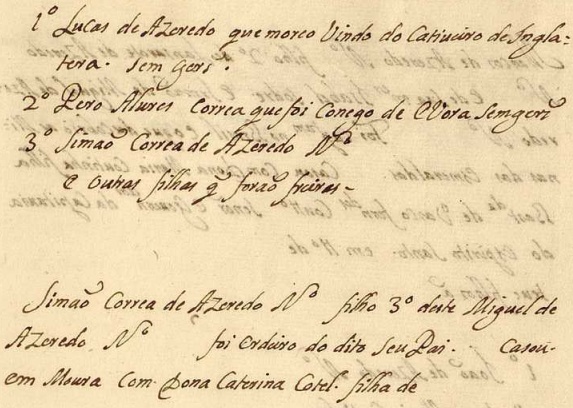 1º Lucas de Azeredo que moreo Vindo do Catiueiro de Ingla=
tera. Sem gers.
2º Pero Alures Correa que foi Conego de Evora Sem gers
3º Simaõ Correa de Azeredo Nº
E outras filhas q̃ foraõ freiras-
Simaõ Correa de Azeredo Nº filho 3º deste Miguel de
Azeredo Nº foi Erdeiro do dito Seu Pai. Casou-
em Moura Com. Dona Caterina Cotel. filha de